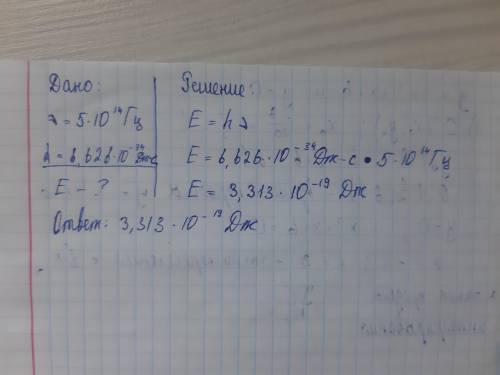 Дано:
λ = 5·10¹⁴ Гц
h = 6,626·10⁻³⁴ Дж·с
E – ?
Решение:
E = h λ
E = 6,626·10⁻³⁴ Дж·с • 5·10¹⁴ Гц
E = 3,313·10⁻¹⁹ Дж
Ответ: 3,313·10⁻¹⁹ Дж